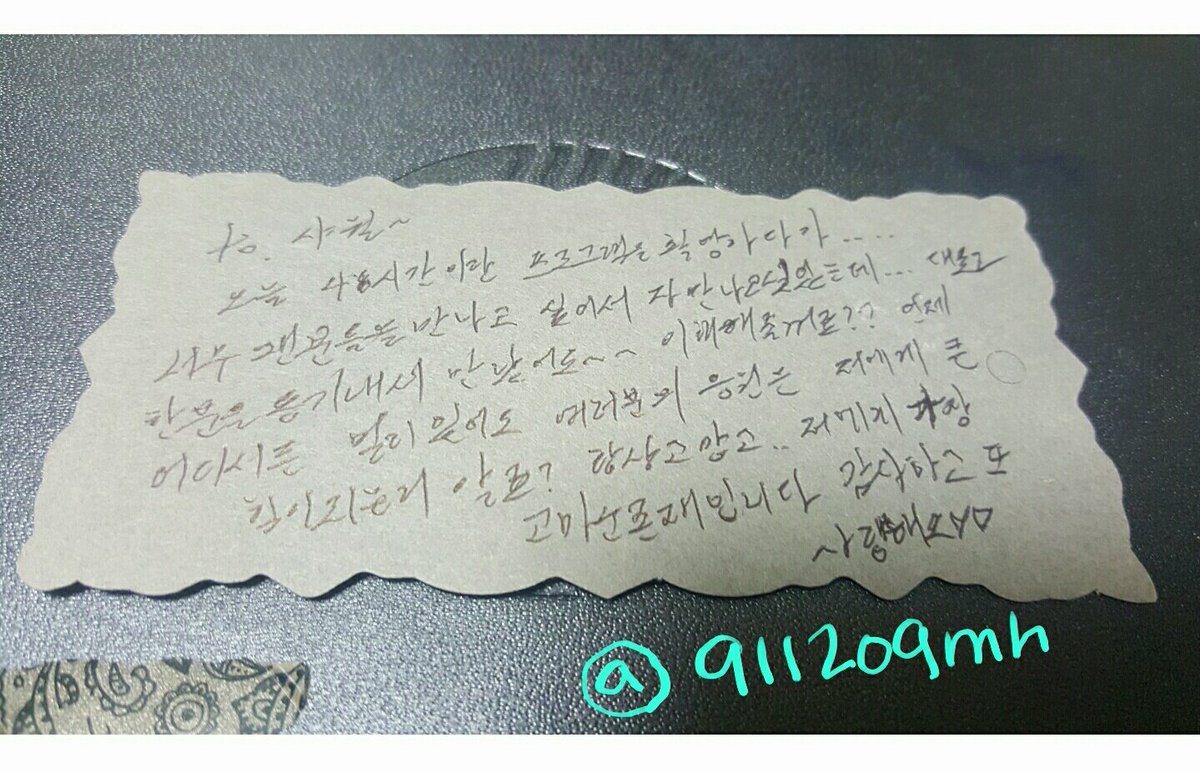 to. 샤월~
오늘 4시간이란 프로그램을 촬영하다가.....
너무 팬분들을 만나고 싶어서 만나고 싶은데...
한분은 만났어요~~ 이해해줄꺼죠?? 언제
어디서든 멀리 있어도 여러분의 응원은 저에게 큰
힘이되는거 알죠? 항상고맙고.. 저에게 가장
고마운존재입니다 감사하고 또
사랑해요
@911209mh